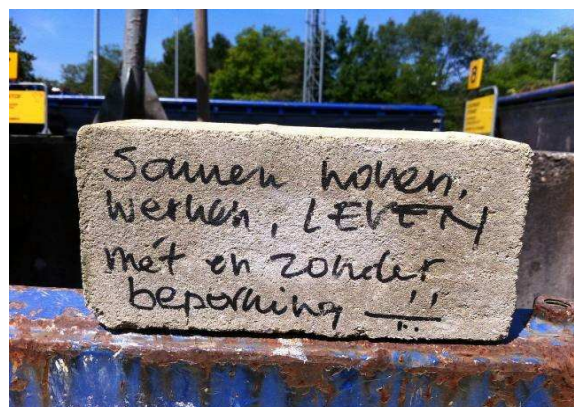 Samen wonen,
werken, LEVEN
mét en zonder
beperking !!
8